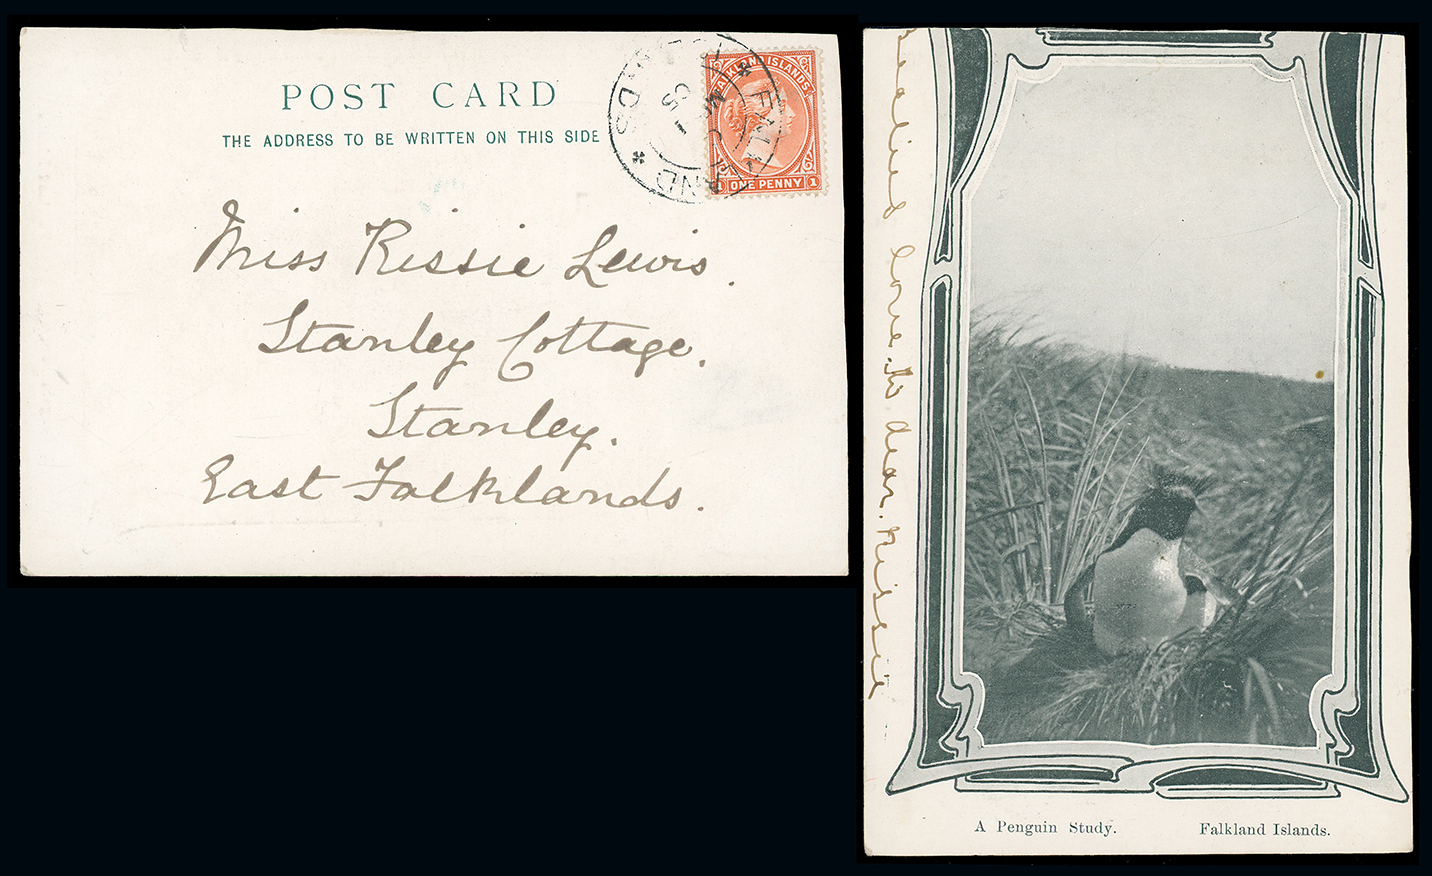 POST CARD
THE ADDRESS TO BE WRITTEN ON THIS SIDE
FALKLAND ISLANDS
FALKLAND ISLANDS.
1 ONE PENNY 1
Miss Rissie Lewis.
Stanley Cottage.
Stanley.
East Falklands.
love to dear. Rissie
A Penguin Study. Falkland Islands.